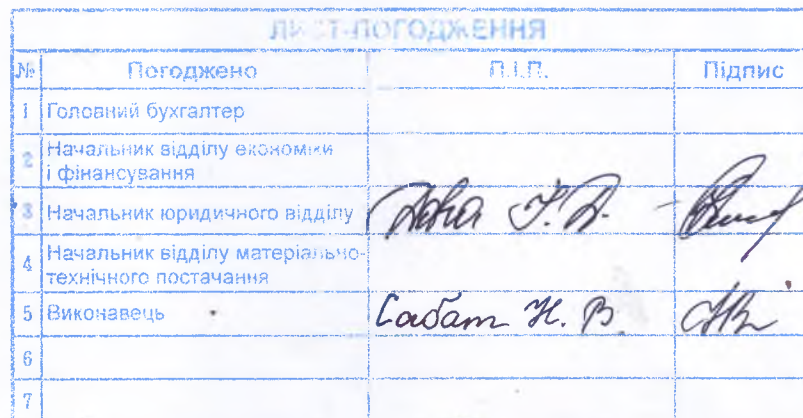 ЛИСТ-ПОГОДЖЕННЯ
№ Погоджено П.І.П. Підпис
1 Головний бухгалтер
2 Начальник відділу економіки
і фінансування
3 Начальник юридичного відділу
4 Начальник відділу матеріально-
технічного постачання
5 Виконавець Сабат Н. В.
6
7